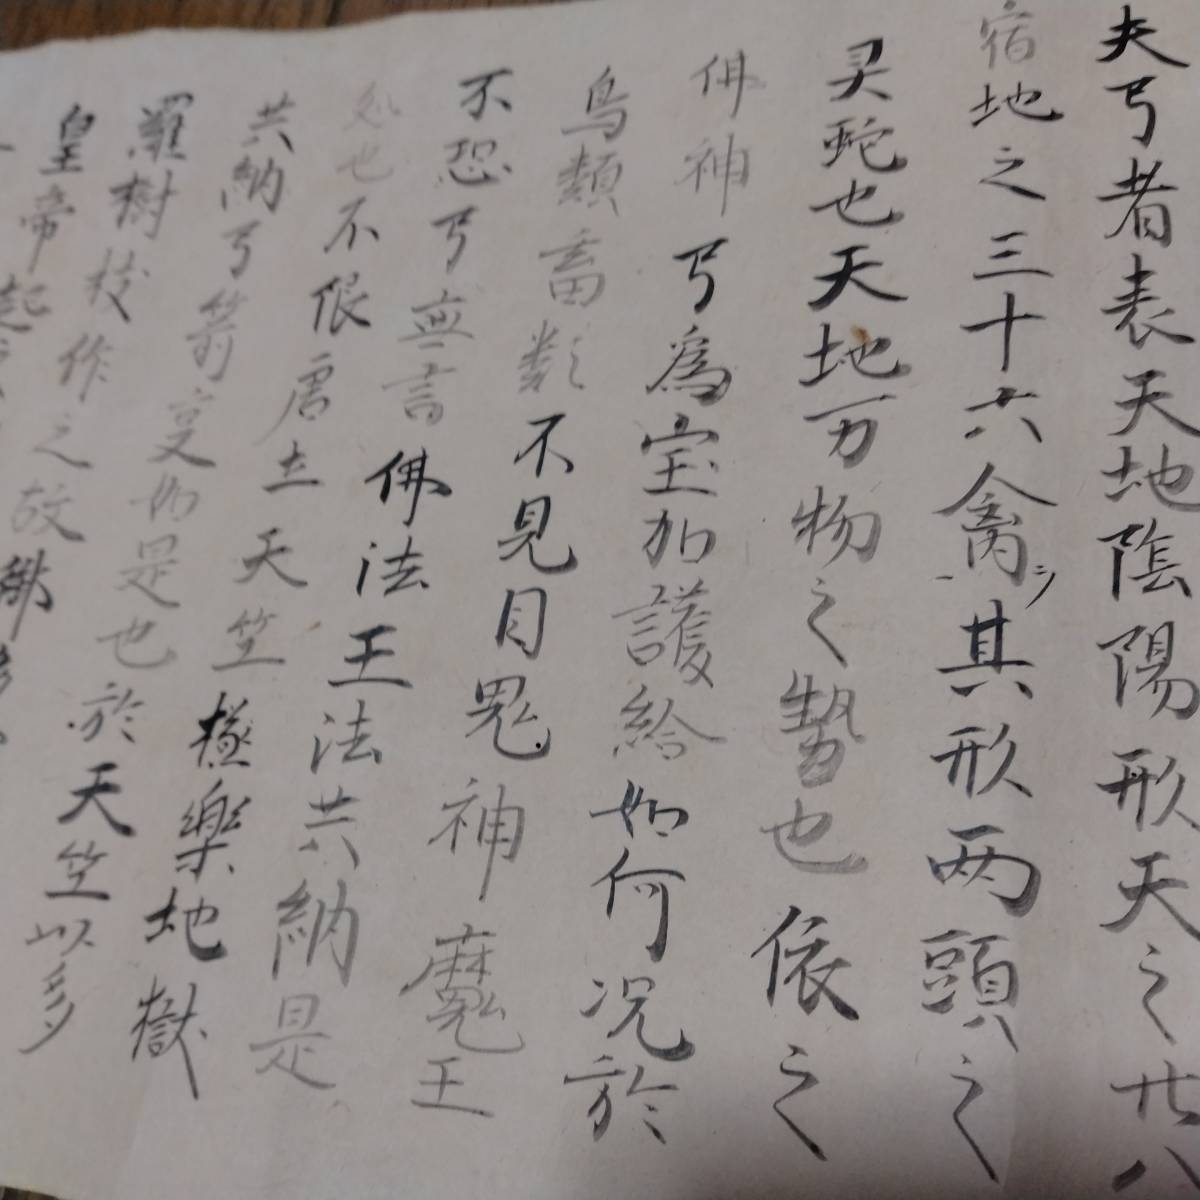 夫弓者表天地陰陽形天之廿八
宿地之三十六禽シ其形两頭之
灵蛇也天地万物之勢也依之
佛神弓為宝加護給如何况於
鳥類畜類不見目鬼神魔王
不恐弓無言佛法王法共納是
処也不限唐土天竺極樂地獄
共納弓箭受如是也於天竺以多
羅樹枝作之故
皇帝起